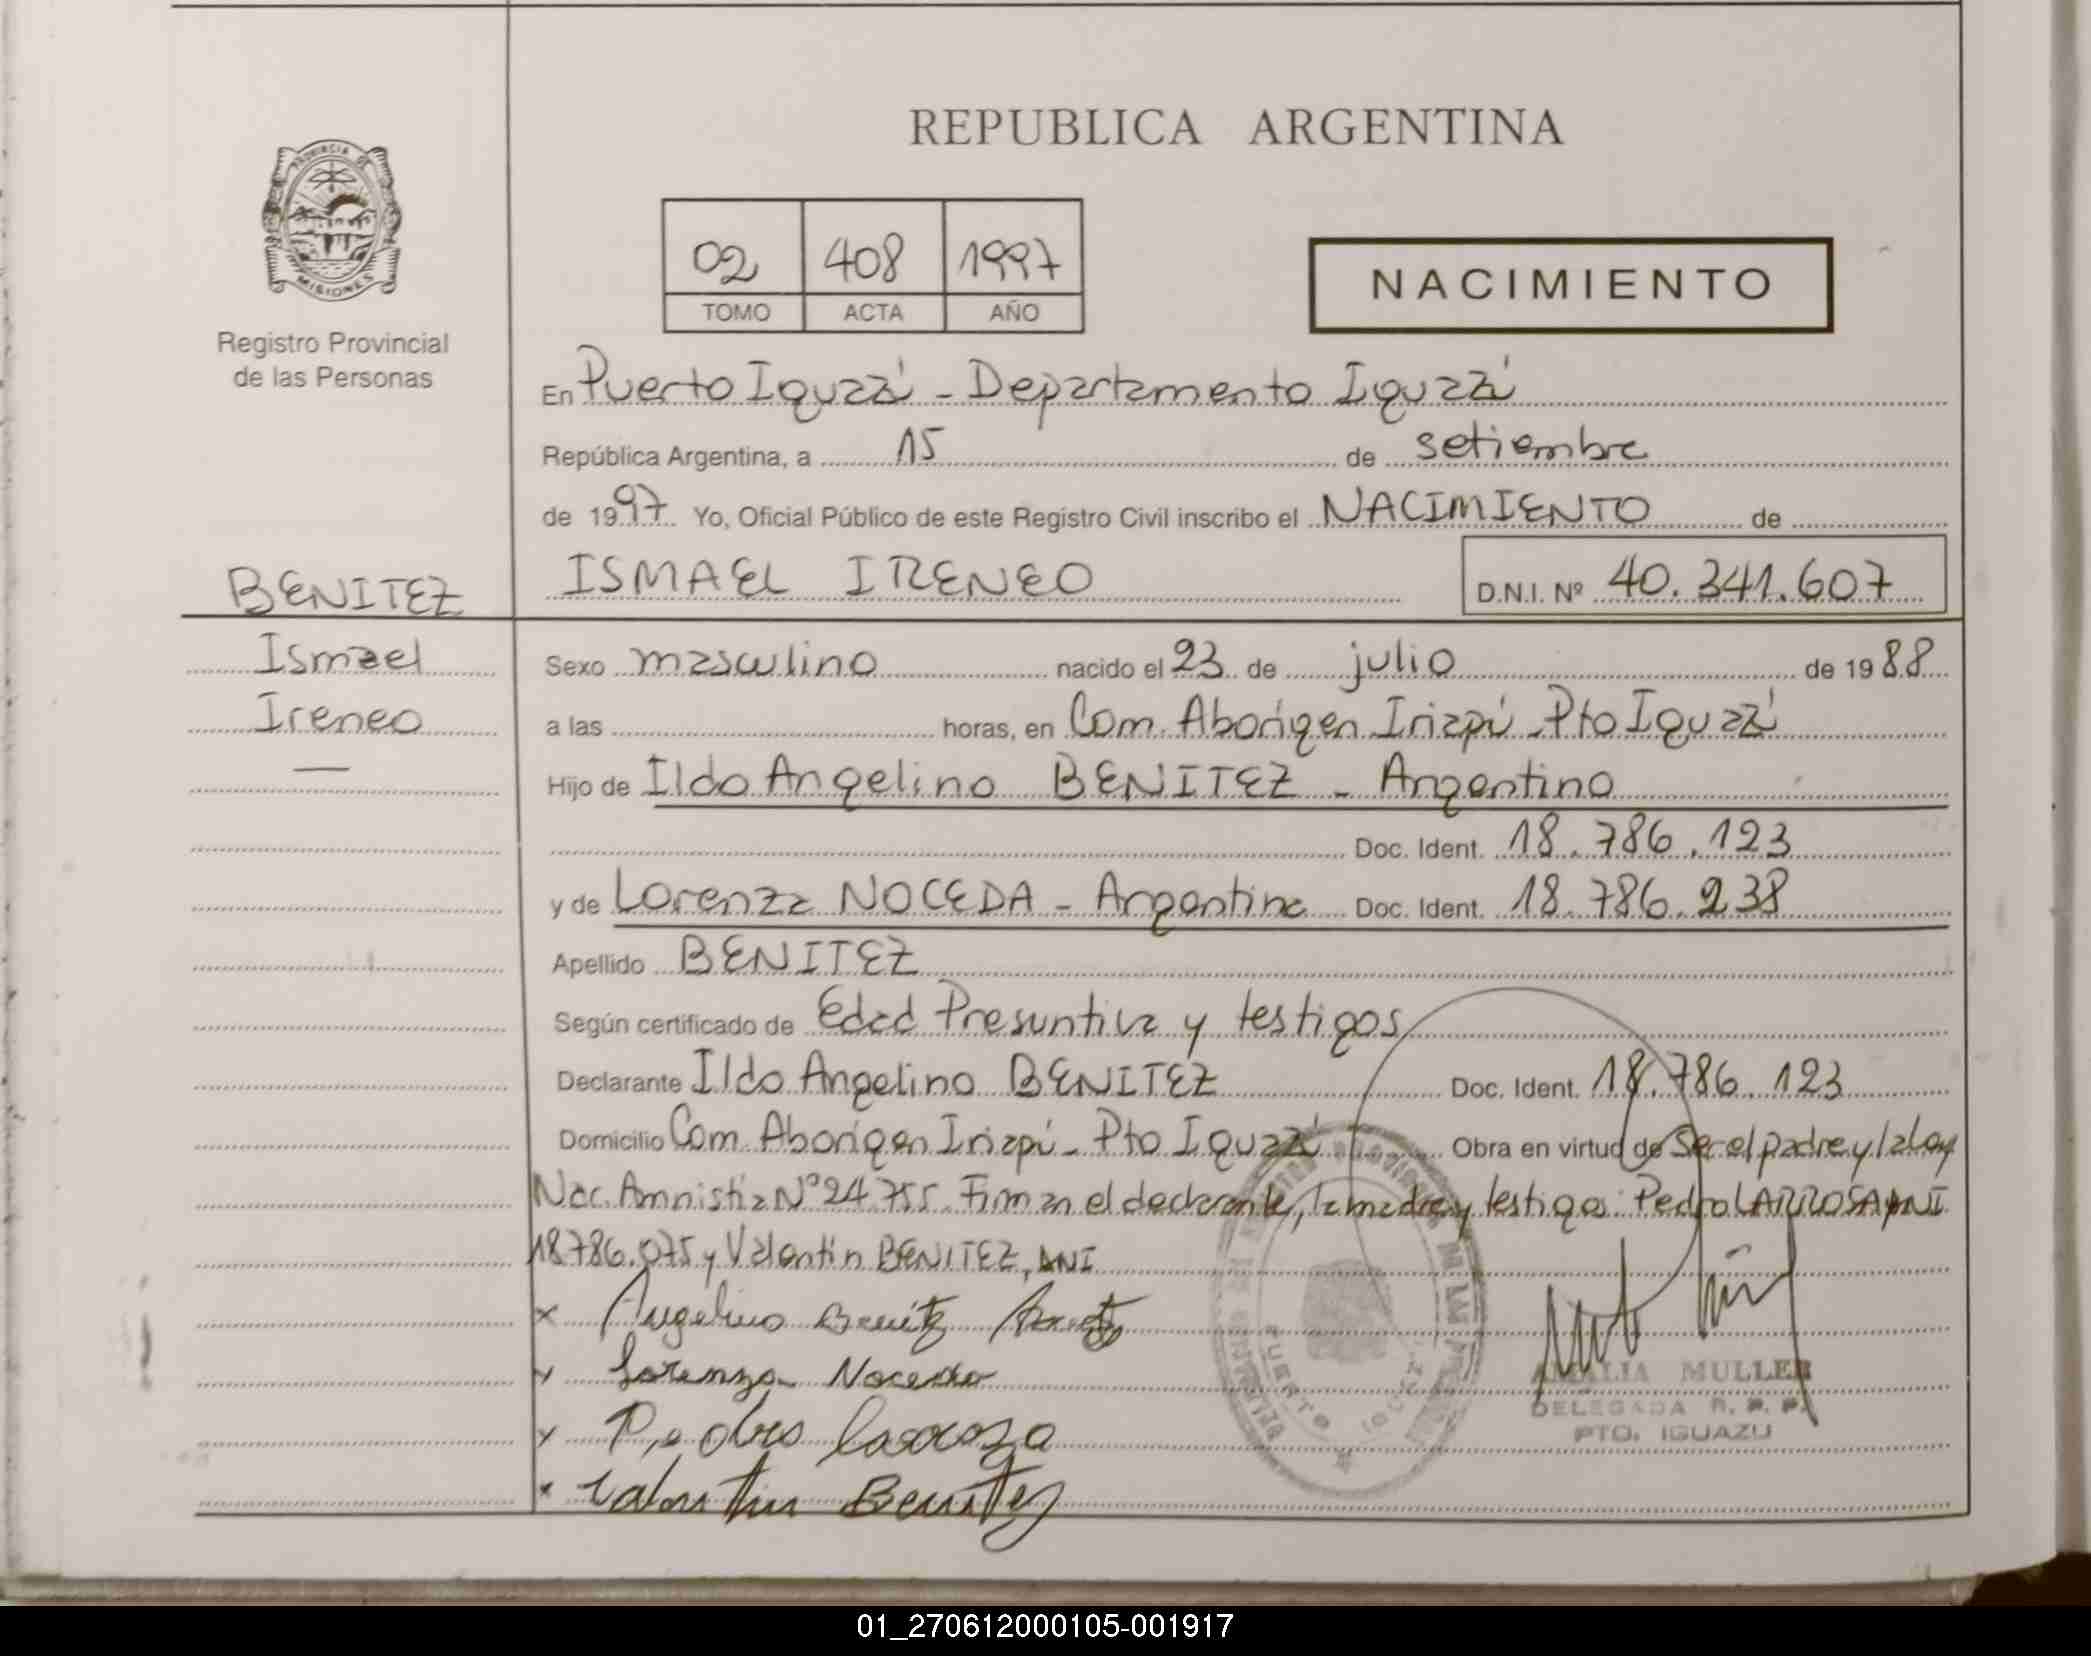 REPUBLICA ARGENTINA
PROVINCIA DE
MISIONES
Registro Provincial
de las Personas
02 408 1997
TOMO ACTA AÑO
NACIMIENTO
En Puerto Iguazú - Departamento Iguazú
República Argentina, a 15 de setiembre
de 1997 Yo, Oficial Público de este Registro Civil inscribo el NACIMIENTO de
BENITEZ
ISMAEL IRENEO D.N.I. Nº 40.341.607
Ismael
Ireneo
Sexo masculino nacido el 23 de julio de 1988
a las horas, en Com. Aborigen Iriapú - Pto Iguazú
Hijo de Ildo Angelino BENITEZ - Argentino
Doc. Ident. 18.786.123
y de Lorenza NOCEDA - Argentina Doc. Ident. 18.786.238
Apellido BENITEZ
Según certificado de Edad Presuntiva y testigos
Declarante Ildo Angelino BENITEZ Doc. Ident. 18.786.123
Domicilio Com. Aborigen Iriapú - Pto Iguazú Obra en virtud de Ser el padre y la Ley
Nac. Amnistia Nº 24.755. Firman el declarante, la madre y testigos: Pedro LARROSA DNI
18786.075 y Valentin BENITEZ, DNI
x Angelino Benitez
x Lorenza Noceda
x Pedro Larroza
x Valentin Benitez
AMALIA MULLER
DELEGADA R. P. P.
PTO. IGUAZU
01_270612000105-001917